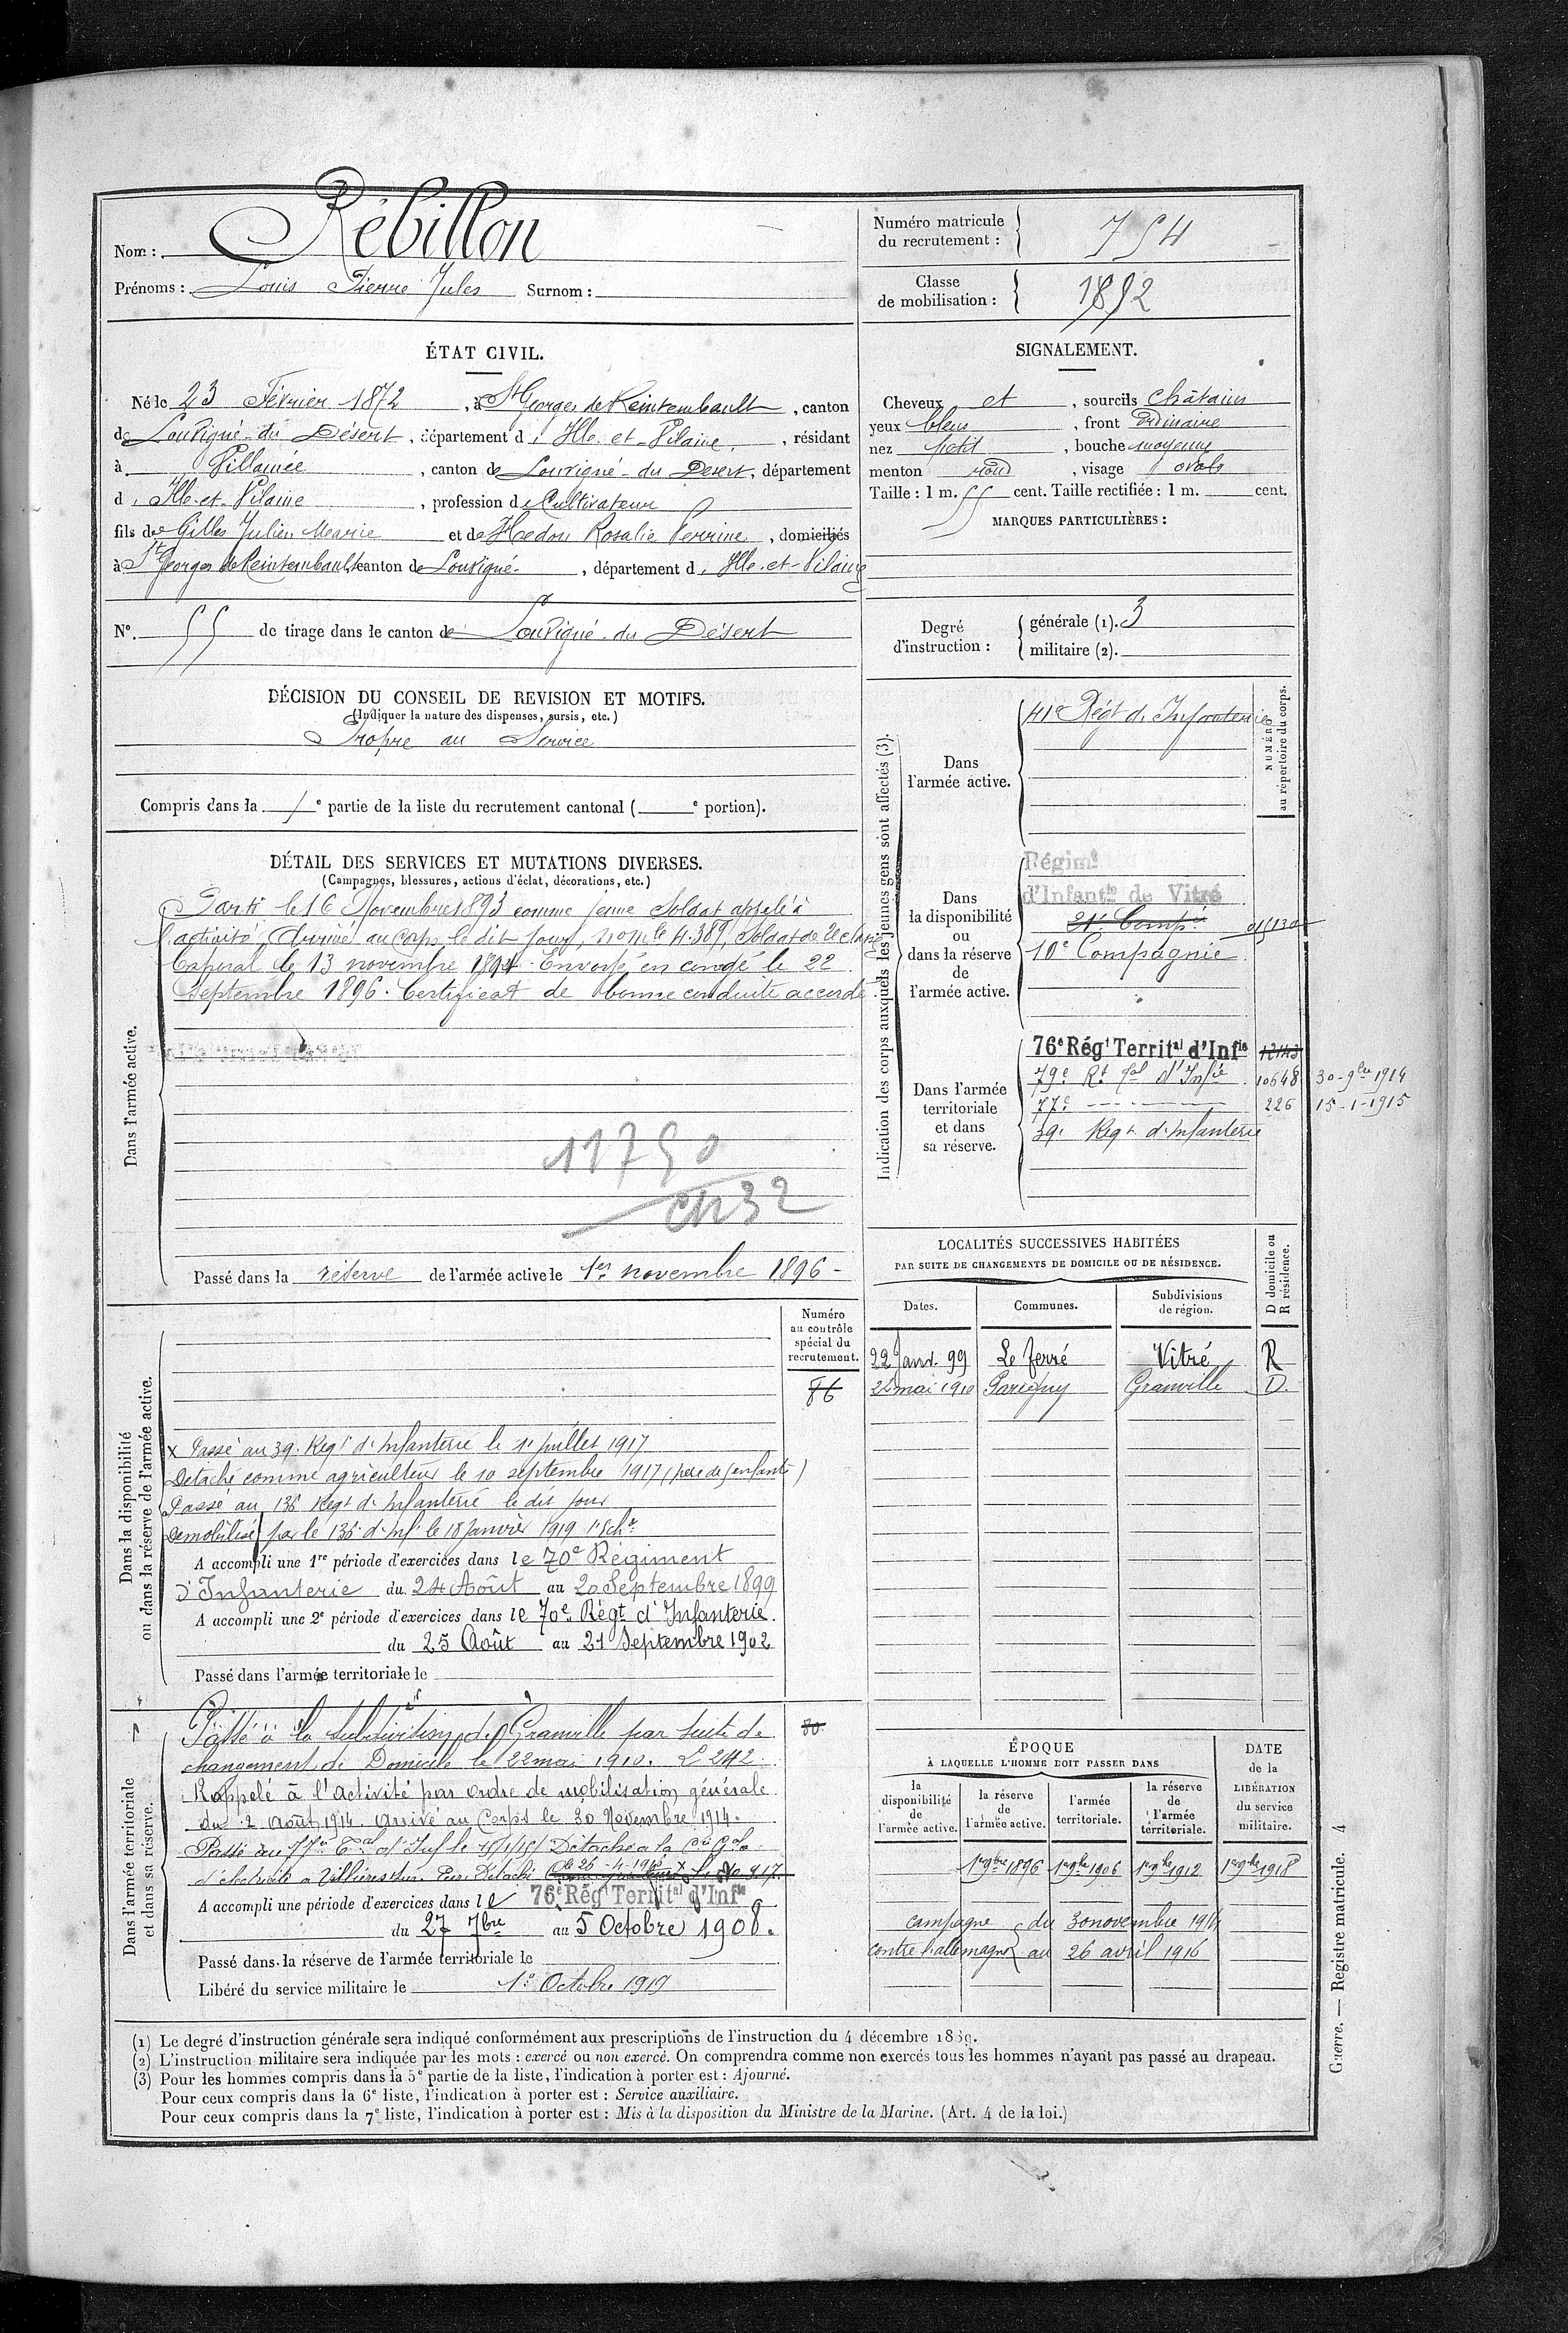 Nom : Rébillon
Prénoms : Louis Pierre Jules Surnom :
Numéro matricule du recrutement : 754
Classe de mobilisation : 1892
ÉTAT CIVIL.
Né le 23 Février 1872, à St Georges de Reintembault, canton
de Louvigné-du Désert, département d'Ille-et-Vilaine, résidant
à Villamée, canton de Louvigné-du Désert, département
d'Ille-et-Vilaine, profession de Cultivateur
fils de Gilles Julien Marie et de Hedou Rosalie Perrine, domiciliés
à St Georges de Reintembault, canton de Louvigné, département d'Ille-et-Vilaine
N° 55 de tirage dans le canton de Louvigné-du Désert
SIGNALEMENT.
Cheveux et, sourcils châtains
yeux bleus, front Ordinaire
nez petit, bouche moyenne
menton rond, visage ovale
Taille : 1 m. 55 cent. Taille rectifiée : 1 m. cent.
MARQUES PARTICULIÈRES :
Degré d'instruction : générale (1). 3
militaire (2).
DÉCISION DU CONSEIL DE REVISION ET MOTIFS.
(Indiquer la nature des dispenses, sursis, etc.)
Propre au Service
Compris dans la 1e partie de la liste du recrutement cantonal ( e portion).
DÉTAIL DES SERVICES ET MUTATIONS DIVERSES.
(Campagnes, blessures, actions d'éclat, décorations, etc.)
Dans l'armée active.
Parti le 16 Novembre 1893 comme jeune Soldat appelé à
l'activité. Arrivé au Corps le dit jour, n° mle 4.389, Soldat de 2e classe
Caporal le 13 novembre 1894. Envoyé en congé le 22
Septembre 1896. Certificat de bonne conduite accordé.
11750
CR32
Passé dans la réserve de l'armée active le 1er novembre 1896
Indication des corps auxquels les jeunes gens sont affectés (3).
NUMÉRO au répertoire du corps.
Dans l'armée active.
41e Régt d'Infanterie
Dans la disponibilité ou dans la réserve de l'armée active.
Régimt
d'Infantie de Vitré
21e Comp.
10e Compagnie
Dans l'armée territoriale et dans sa réserve.
76e Régt Territal d'Infie 12143
79e Rt tal d'Infie 10648 30-9bre 1914
77e 226 15-1-1915
39e Regt d'Infanterie
Dans la disponibilité ou dans la réserve de l'armée active.
Numéro au contrôle spécial du recrutement.
86
x Passé au 39e Regt d'Infanterie le 1e juillet 1917
Détaché comme agriculteur le 10 septembre 1917 (père de 5 enfants)
Passé au 136 Regt d'Infanterie le dit jour
Démobilisé par le 136e d'Inf le 18 Janvier 1919 1e Schon
A accompli une 1re période d'exercices dans le 70e Régiment
d'Infanterie du 24 Août au 20 Septembre 1899
A accompli une 2e période d'exercices dans le 70e Régt d'Infanterie
du 25 Août au 21 Septembre 1902
Passé dans l'armée territoriale le
LOCALITÉS SUCCESSIVES HABITÉES
PAR SUITE DE CHANGEMENTS DE DOMICILE OU DE RÉSIDENCE.
Dates. Communes. Subdivisions de région. D domicile ou R résidence.
22 Janv. 99 Le ferré Vitré R
22 mai 1910 Parigny Granville D.
Dans l'armée territoriale et dans sa réserve.
Passé à la subdivision de Granville par suite de 80
changement de Domicile le 22 mai 1910. L 242.
Rappelé à l'activité par ordre de mobilisation générale
du 2 Août 1914. Arrivé au Corps le 30 Novembre 1914.
Passé au 77e Tal d'Inf le 15/1/15 Détaché à la Cie Gale
d'électricité Détaché le 26-4-1916
A accompli une période d'exercices dans le 76e Régt Territal d'Infie
du 27 7bre au 5 Octobre 1908.
Passé dans la réserve de l'armée territoriale le
Libéré du service militaire le 1e Octobre 1919
ÉPOQUE
À LAQUELLE L'HOMME DOIT PASSER DANS
la disponibilité de l'armée active. la réserve de l'armée active. l'armée territoriale. la réserve de l'armée territoriale. DATE de la LIBÉRATION du service militaire.
1er 9bre 1896 1er 9bre 1906 1er 9bre 1912 1er 9bre 1918
campagne du 30 novembre 1914
contre l'allemagne au 26 avril 1916
(1) Le degré d'instruction générale sera indiqué conformément aux prescriptions de l'instruction du 4 décembre 1889.
(2) L'instruction militaire sera indiquée par les mots : exercé ou non exercé. On comprendra comme non exercés tous les hommes n'ayant pas passé au drapeau.
(3) Pour les hommes compris dans la 5e partie de la liste, l'indication à porter est : Ajourné.
Pour ceux compris dans la 6e liste, l'indication à porter est : Service auxiliaire.
Pour ceux compris dans la 7e liste, l'indication à porter est : Mis à la disposition du Ministre de la Marine. (Art. 4 de la loi.)
Guerre. — Registre matricule. 4